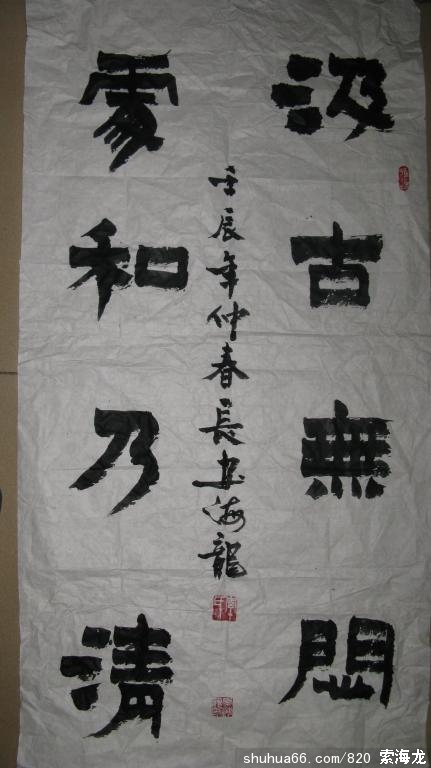 汲古無悶
處和乃清
壬辰年仲春長安海龍
shuhua66.com/820 索海龙